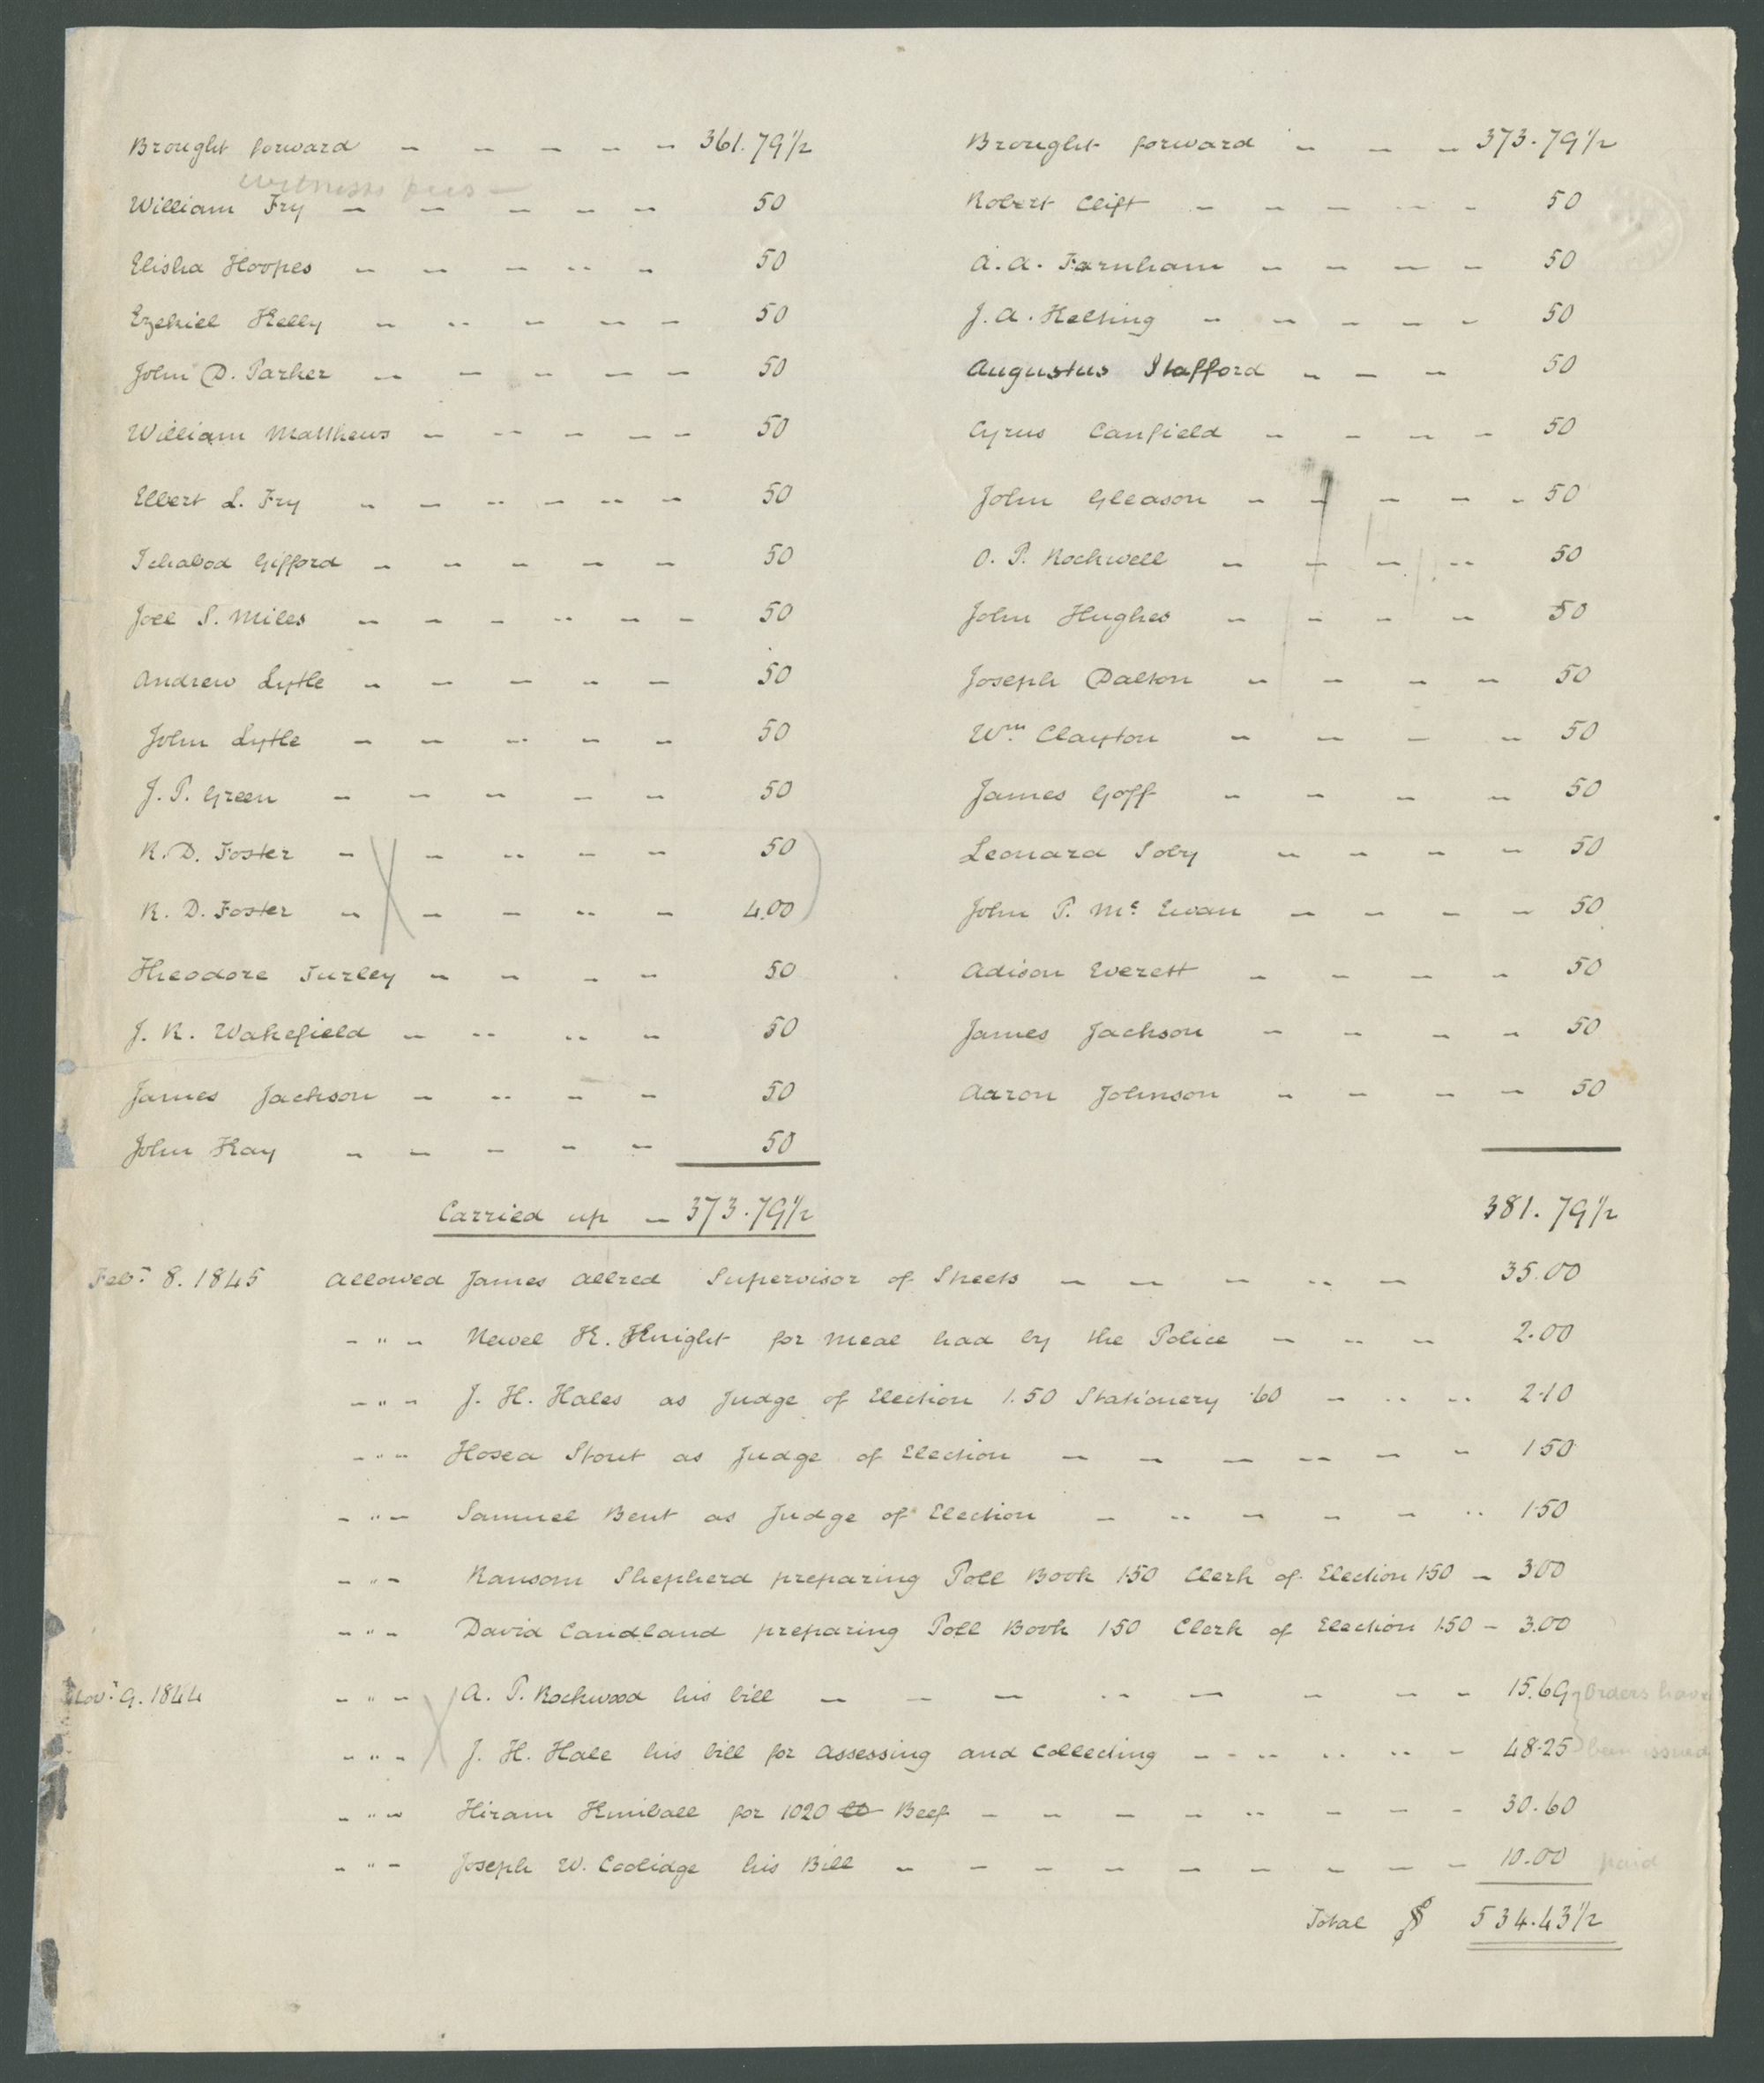 Brought forward - - - - - 361.79½
witness fees -
William Fry - - - - - 50
Elisha Hoopes - - - - - 50
Ezekiel Kelly - - - - - 50
John D. Parker - - - - - 50
William Matthews - - - - - 50
Elbert L. Fry - - - - - - 50
Ichabod Gifford - - - - - 50
Joel S. Miles - - - - - - 50
Andrew Lytle - - - - - 50
John Lytle - - - - - 50
J. P. Green - - - - - 50
R. D. Foster - - - - - 50
R. D. Foster - - - - - 4.00
Theodore Turley - - - - 50
J. R. Wakefield - - - - 50
James Jackson - - - - 50
John Kay - - - - - 50
Carried up - 373.79½
Brought forward - - - 373.79½
Robert Clift - - - - - 50
A. A. Farnham - - - - 50
J. A. Kelting - - - - - 50
Augustus Stafford - - - 50
Cyrus Canfield - - - - 50
John Gleason - - - - - 50
O. P. Rockwell - - - - 50
John Hughes - - - - 50
Joseph Dalton - - - - 50
Wm. Clayton - - - - 50
James Goff - - - - 50
Leonard Soby - - - - 50
John P. Mc Ewan - - - - 50
Adison Everett - - - - 50
James Jackson - - - - 50
Aaron Johnson - - - - 50
381.79½
Feby. 8. 1845 Allowed James Allred Supervisor of Streets - - - - - 35.00
- " - Newel K. Knight for meal had by the Police - - - 2.00
- " - J. H. Hales as Judge of Election 1.50 Stationery .60 - - - 2.10
- " - Hosea Stout as Judge of Election - - - - - - 1.50
- " - Samuel Bent as Judge of Election - - - - - - 1.50
- " - Ransom Shepherd preparing Poll Book 1.50 Clerk of Election 1.50 - 3.00
- " - David Candland preparing Poll Book 1.50 Clerk of Election 1.50 - 3.00
Novr. 9. 1844 - " - A. P. Rockwood his bill - - - - - - - - 15.69 Orders have
- " - J. H. Hale his bill for assessing and collecting - - - - - - 48.25 been issued
- " - Hiram Kimball for 1020 lb Beef - - - - - - - - 30.60
- " - Joseph W. Coolidge his Bill - - - - - - - - - 10.00 paid
Total $ 534.43½